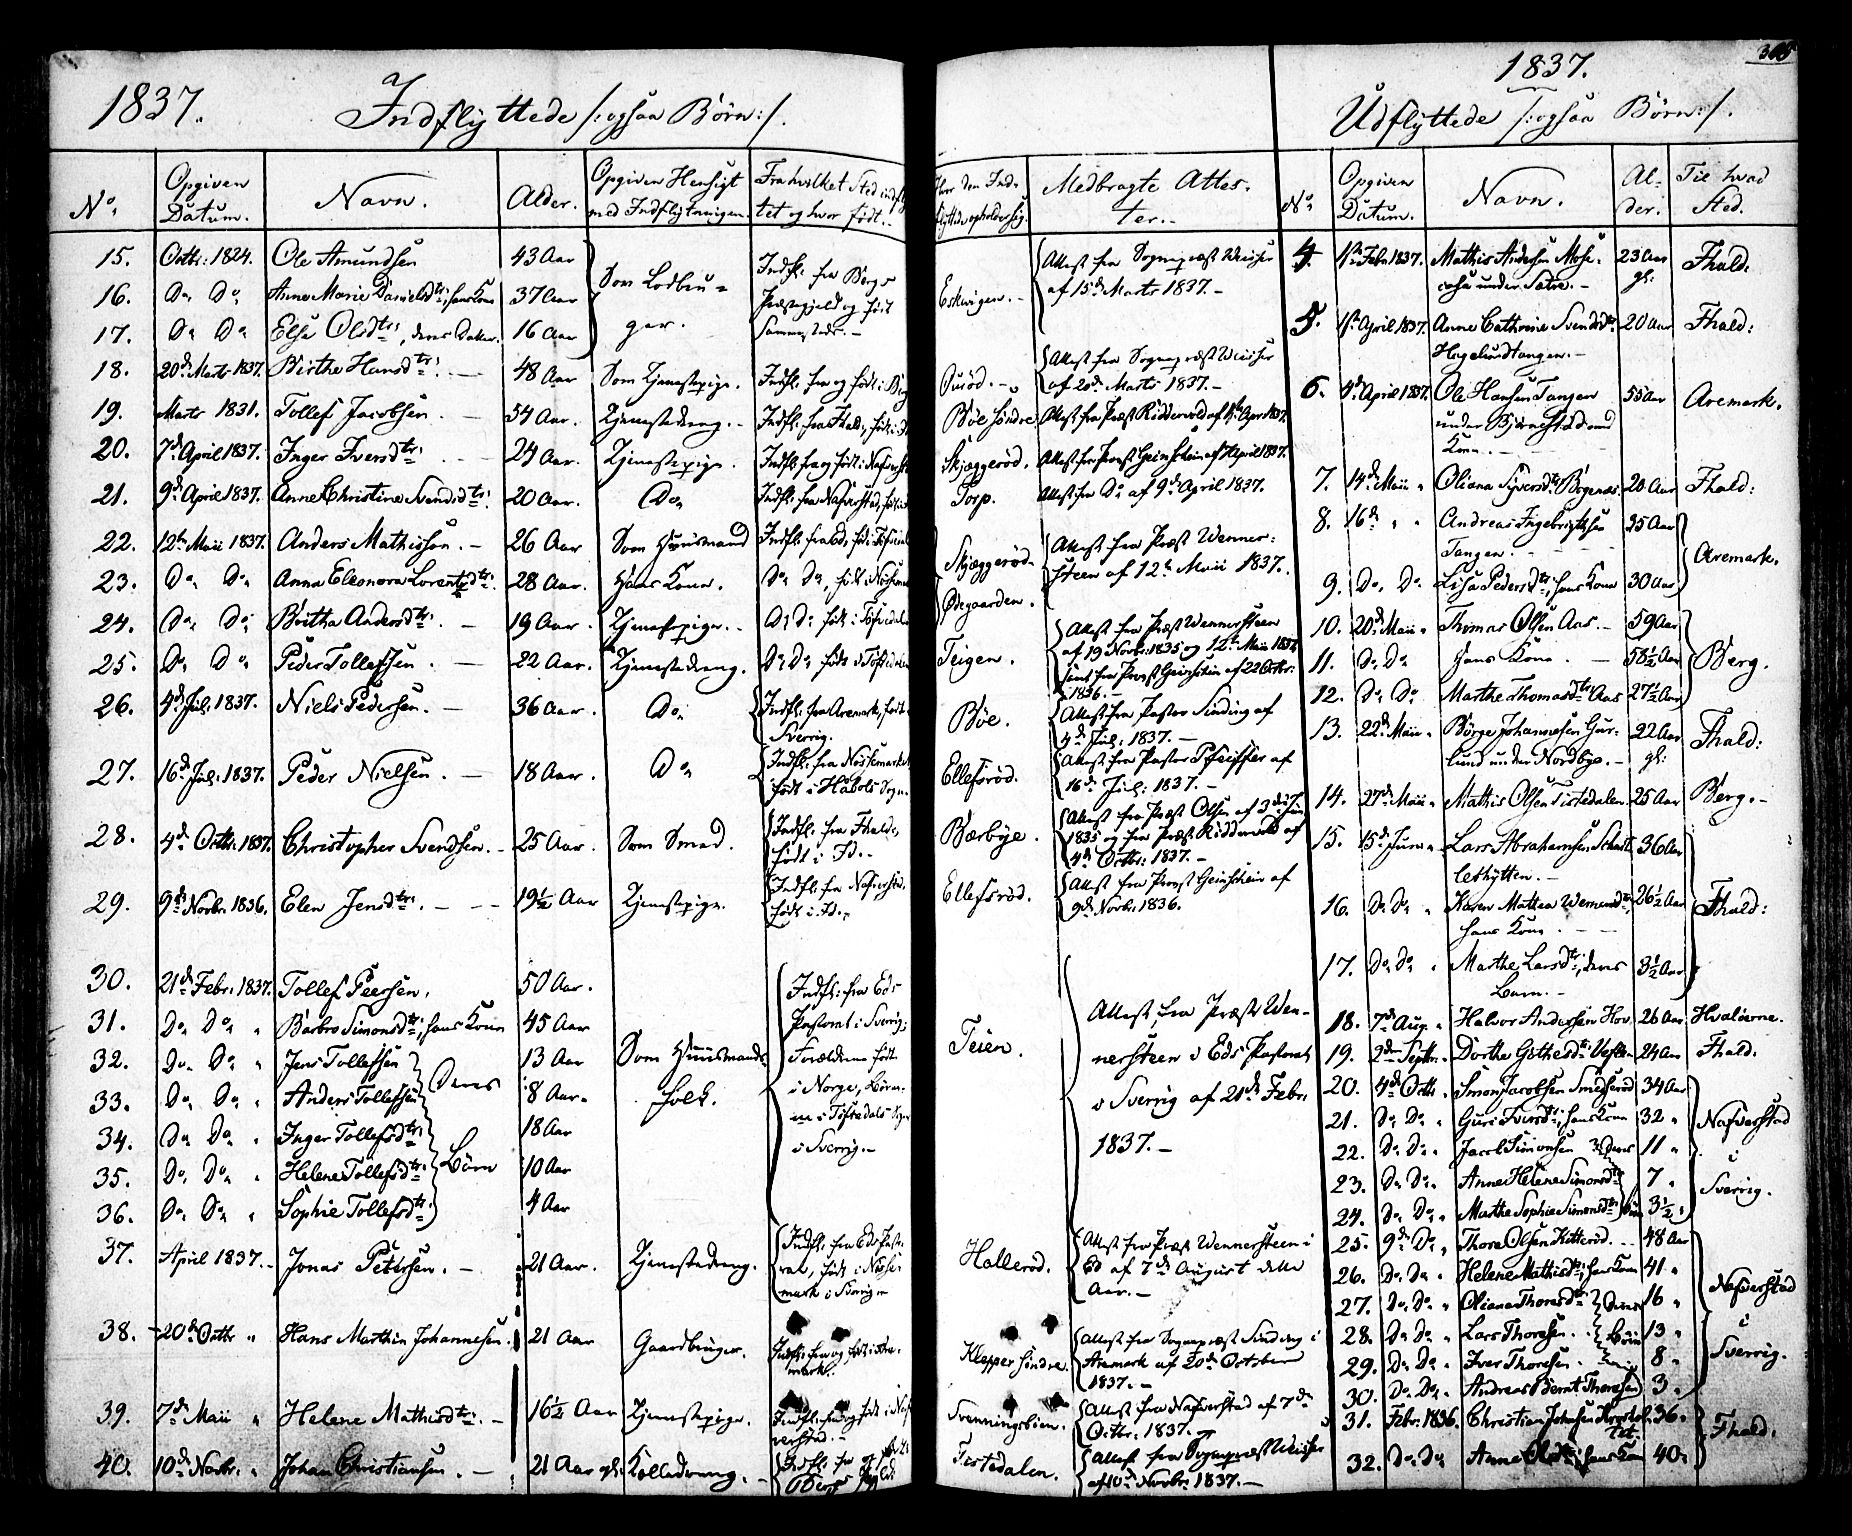 1837. Indflyttede /: ogsaa Børn :/.
No. Opgiven Datum. Navn. Alder. Opgiven Hensigt med Indflytningen. Fra hvilket Sted indflyttet og hvor født.
15. Octbr: 1824. Ole Amundsen 43 Aar Indfl: fra Bergs
16. Do Do Anne Marie Danielsdtr:, hans Kone 37 Aar Som Lodbru= Præstegjeld og født
17. Do Do Else Olsdtr:, deres Datter 16 Aar ger. sammesteds. -
18. 20de Marts 1837. Birthe Hansdtr: 48 Aar Som Tjenestepige. Indfl: fra og født i Berg
19. Marts 1831. Tollef Jacobsen. 54 Aar. Tjenestedreng. - Indfl: fra Fhald:, født i
20. 7de April 1837. Inger Iversdtr: 24 Aar. Tjenestepige. Indfl: fra og født i
21. 9de April 1837. Anne Christine Svendsdtr: 20 Aar. Do Indfl: fra Nafverstad, født i
22. 12te Maii 1837. Anders Mathissen. - 26 Aar Som Huusmand
23. Do Do Anna Eleonora Lorentzdtr: 28 Aar. Hans Kone. Do Do, født i
24. Do Do Birtha Andersdtr: - 19 Aar. Tjenestepige. - Do Do født i
25. Do Do Peder Tollefsen. - 22 Aar. Tjenestedreng. Do Do født i
26. 4de Jul: 1837. Niels Pedersen. - 36 Aar. Do Indfl: fra Aremark, født i
Sverrig.
27. 16de Jul: 1837. Peder Nielsen. - 18 Aar. Do Indfl: fra Nössemarket
født i Håbols Sogn
28. 4de Octbr: 1837. Christopher Svendsen. - 25 Aar. Som Smed. Indfl: fra Fhald:,
født i Id. -
29. 9de Novbr. 1836. Elen Jensdtr: - 19½ Aar Tjenestepige. Indfl: fra Nafverstad,
født i Id.
30. 21de Febr: 1837. Tollef Peersen. 50 Aar. Indfl: fra Eds
31. Do Do " Barbro Simonsdtr:, hans Kone 45 Aar Pastorat i Sverrig;
32. Do Do " Jens Tollefsen 13 Aar Som Huusmands= Forældrene født
33. Do Do " Anders Tollefsen deres 8 Aar. folk. i Norge, Børne=
34. Do Do " Inger Tollefsdtr: 18 Aar ne i Töftedals Sogn
35. Do Do " Helene Tollefsdtr: Børn 10 Aar i Sverrig. -
36. Do Do " Sophie Tollefsdtr: 4 Aar
37. April 1837. - Jonas Petersen. - 21 Aar. Tjenestedreng. Indfl: fra Eds Pasto=
rat, født i Nösse=
mark i Sverrig -
38. 20de Octbr " Hans Marthin Johannesen. 21 Aar Gaardbruger. Indfl: fra og født i Are=
mark.
39. 7de Maii " Helene Mathisdtr: - 16½ Aar Tjenestepige. Indfl: fra og født i Naf=
verstad. -
40. 10de Novbr. " Johan Christiansen. - 21 Aar gl: Indfl: fra og født
i Bergs
Hvor den Ind= flyttede opholder sig. Medbragte Attes= ter.
Attest fra Sognepræst
Eskevigen. - af 15de Marts 1837. -
Attest fra Sognepræst
af 20de Marts 1837. -
Bøe søndre Attest fra Præst Riddervold af April 1837.
Skjæggerød. Attest fra Provst af 7de April 1837.
Torp. Attest fra Do af 9de April 1837.
Skjæggerød= Attest fra Præst Wenner=
steen af 12te Maii 1837.
Ødegaarden.
Attest fra Præst Wennersteen
Teigen. af 19 Novbr: 1835 og 12te Maii 1837
samt fra Provst af 22 Octbr:
1836. -
Bøe. Attest fra Pastor Sinding af
4de Jul: 1837. -
Ellefsrød. Attest fra Pastor Pfeiffer af
16de Jul: 1837. -
Bærbye. Attest fra Præst Olsen af
1835 og fra Præst Riddervold af
4de Octbr: 1837. -
Ellefsrød. Attest fra Provst af
9de Novbr: 1836.
Attest fra Præst Wen=
Teien. nersteen i Eds Pastorat
i Sverrig af 21de Febr:
1837. -
Hallerød. Attest fra Præst Wennersteen i
Ed af 7de August dette
Aar. -
Klepper søndre Attest fra Sognepræst Sinding i
Aremark af 20de October
1837. -
Svenningsbien. Attest fra Nafverstad af 7de
Octbr: 1837. -
Tistedalen. Attest fra Sognepræst
af 10de Novbr: 1837. -
365
1837.
Udflyttede /: ogsaa Børn :/.
No. Opgiven Datum. Navn. Al= der. Til hvad Sted.
4. 1ste Febr. 1837. Mathis Andersen Mose= 23 Aar Fhald:
gl:
5. 1ste April 1837. Anne Cathrine Svendsdtr: 20 Aar Fhald:
Hagelundtangen. -
6. April 1837. Ole Hansen Tangen 55 Aar Aremark.
under Bjørnestad med
Kone.
7. 14de Maii " Oliana Syversdtr: Bøgenæs. 20 Aar Fhald:
8. 16de " " Andreas Ingebrigtsen 35 Aar
Tangen. Aremark.
9. Do Do Lisa Pedersdtr:, hans Kone 30 Aar
10. 20de Maii " Thomas Olsen Aas. - 59 Aar
11. Do Do hans Kone. - 58½ Aar Berg.
12. Do Do Marthe Thomasdtr: Aas 27½ Aar
13. 22de Maii " Børge Johannesen Gur= 22 Aar Fhald:
lund under Nordbye. - gl:
14. 27de Maii " Mathis Olsen Tistedalen. 25 Aar Berg. -
15. 15de Juni " Lars Abrahamsen 36 Aar
lehytten. -
16. Do Do " Karen Mathea 26½ Aar Fhald:
hans Kone.
17. Do Do " Marthe Larsdtr:, deres 3½ Aar
Barn. -
18. 7de Aug: " Halvor Andersen Hov. 26 Aar Hvaløerne.
19. 2den Septbr: " Dorthe 24 Aar Fhald.
20. 4de Octbr " Simon Jacobsen 34 Aar
21. Do Do " Guri Iversdtr:, hans Kone 32 " Nafverstad
22. Do Do " Jacob Simonsen deres 11 " i
23. Do Do " Anne Helene Simonsdtr: 7 " Sverrig.
24. Do Do " Marthe Sophie Simonsdtr: Børn 3½ "
25. 9de Do " Thore Olsen Kitterød. 48 Aar
26. Do Do " Helene Mathisdtr:, hans Kone 41 " Nafverstad
27. Do Do " Oliana Thoresdtr: deres 16 " i
28. Do Do " Lars Thoresen. Børn 13 " Sverrig.
29. Do Do " Iver Thoresen. 8 "
30. Do Do " Andreas Bernt Thoresen 3 "
31. Febr: 1836. Christian Johnsen 36 " Fhald.
32. Do Do Anne Olsdtr:, hans Kone 40 "